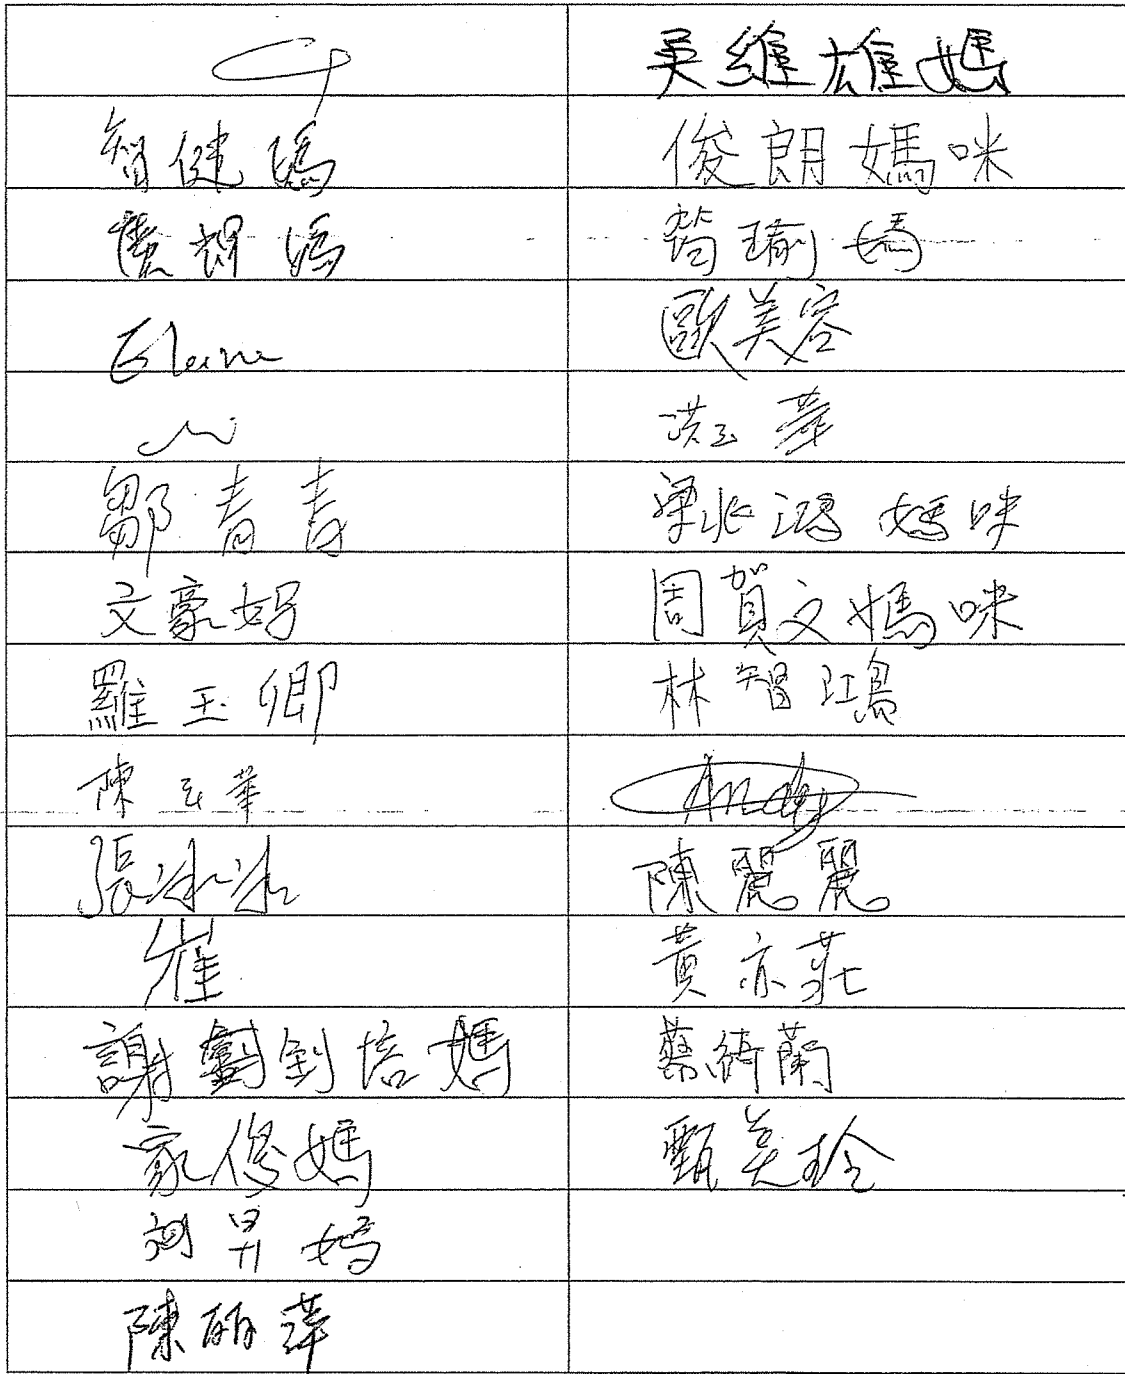 吳維雄媽
智健媽
俊朗媽咪
媽
筠瑜媽
Elaine
歐美容
洪玉萍
鄒青青
梁兆鴻媽咪
文豪媽
周賀文媽咪
羅玉卿
林智鴻
陳玉華
Andy
張冰冰
陳麗麗
崔
黃亦莊
謝劉釗培媽
蔡綺蘭
家俊媽
甄美玲
昇媽
陳萍